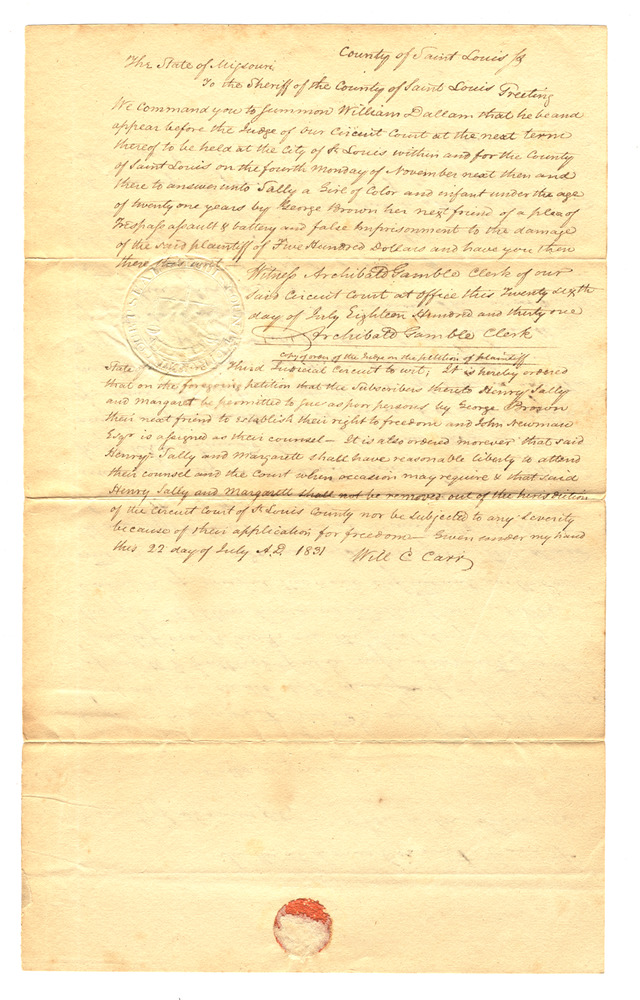 The State of Missouri
County of Saint Louis Js
To the Sheriff of the County of Saint Louis Greeting
We command you to Summon William Dallam that he be and
appear before the Judge of our Circuit Court at the next term
thereof to be held at the City of St Louis within and for the County
of Saint Louis on the fourth Monday of November next then and
there to answer unto Sally a Girl of Color and infant under the age
of twenty one years by George Brown her next friend of a plea of
Trespass assault & battery and false Imprisonment to the damage
of the said plaintiff of Five Hundred Dollars and have you then
there this writ
Witness Archibald Gamble Clerk of our
Said Circuit Court at office this Twenty sixth
day of July Eighteen Hundred and thirty one
Archibald Gamble Clerk
Copy of order of the Judge on the petition of plaintiff
State Third Judicial Circuit to wit; It is hereby ordered
that on the foregoing petition that the Subscribers thereto Henry Sally
and Margaret be permitted to sue as poor persons by George Brown
their next friend to establish their right to freedom and John Newman
Esqr is assigned as their counsel — It is also ordered morever that said
Henry Sally and Margarett shall have reasonable liberty to attend
their counsel and the Court when occasion may require & that said
Henry Sally and Margarett shall not be removed out of the Jurisdiction
of the Circuit Court of St Louis County nor be subjected to any severity
because of their application for freedom — Given under my hand
this 22 day of July A.D. 1831 Will C Carr